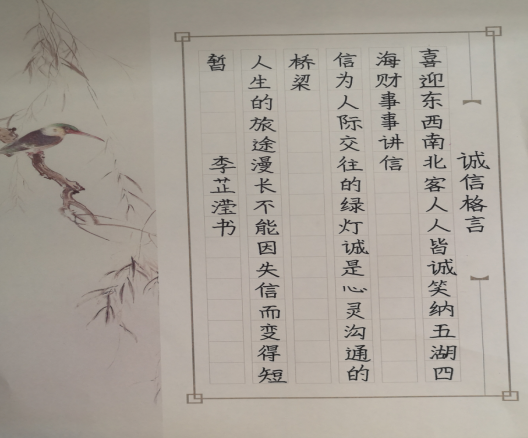 诚信格言
喜迎东西南北客人人皆诚笑纳五湖四
海财事事讲信
信为人际交往的绿灯诚是心灵沟通的
桥梁
人生的旅途漫长不能因失信而变得短
暂
李芷滢书